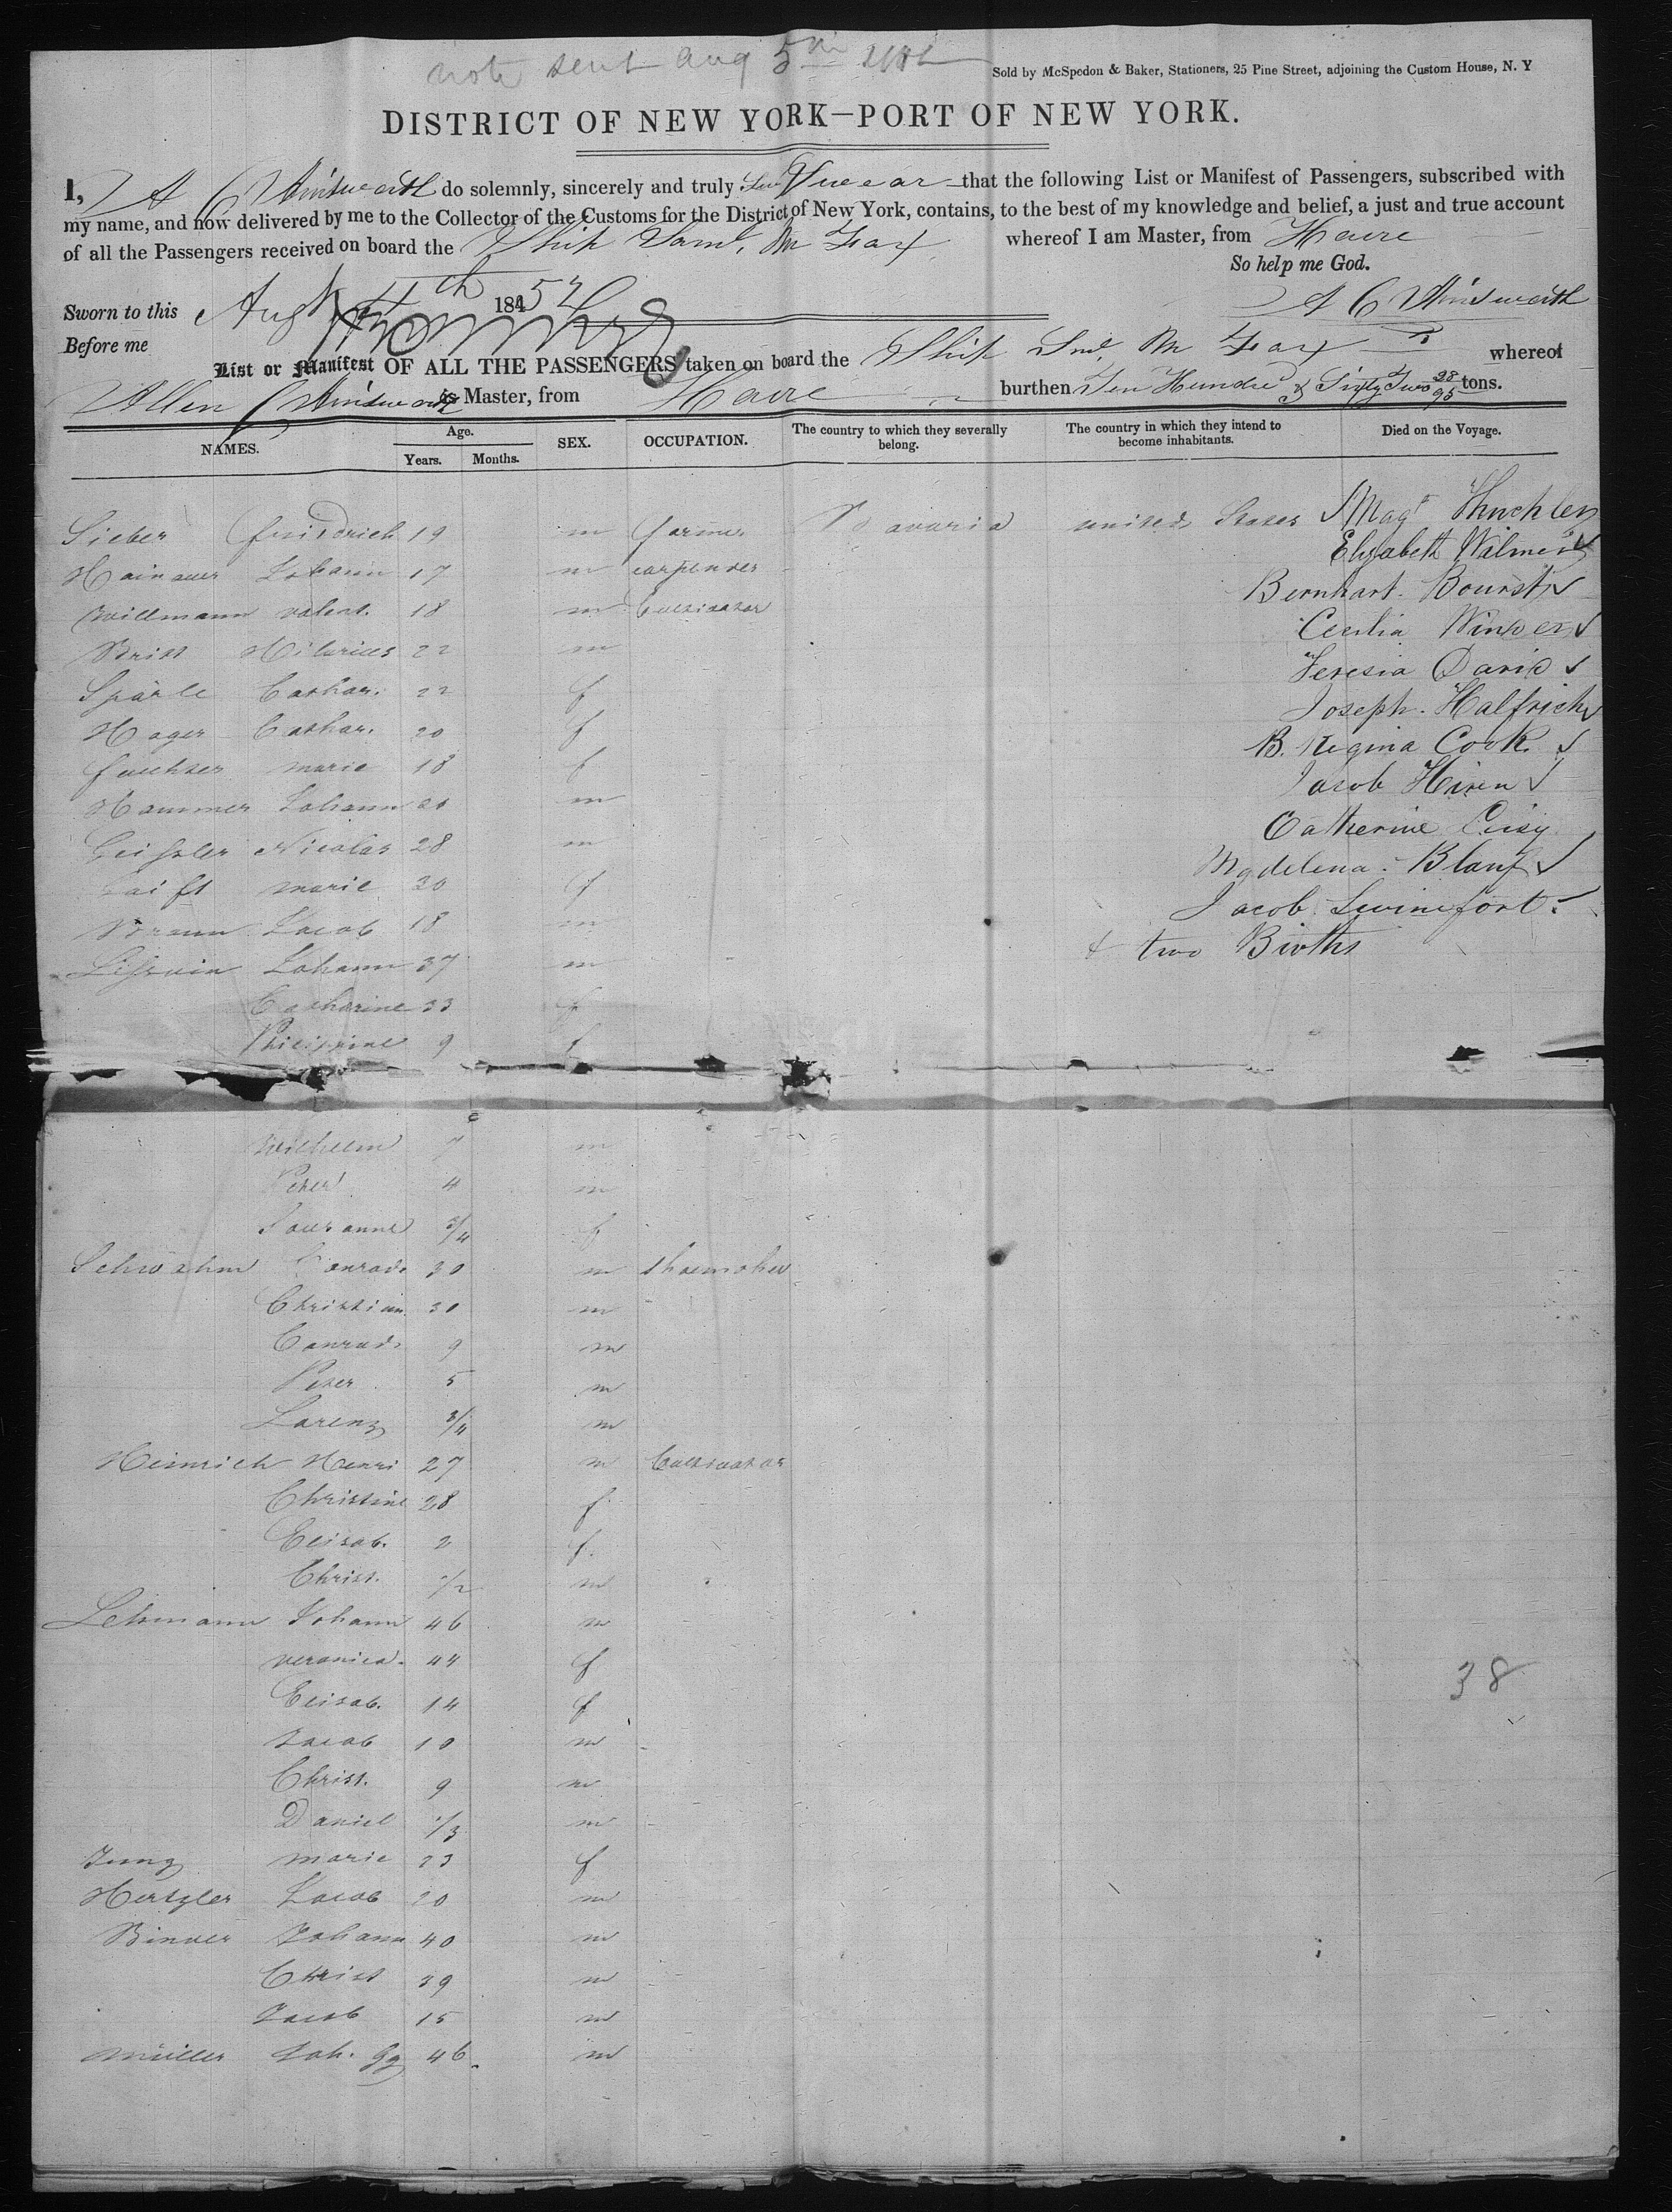 note sent Aug 5th
Sold by McSpedon & Baker, Stationers, 25 Pine Street, adjoining the Custom House, N. Y
DISTRICT OF NEW YORK—PORT OF NEW YORK.
I, A C Ainsworth do solemnly, sincerely and truly Swear that the following List or Manifest of Passengers, subscribed with
my name, and now delivered by me to the Collector of the Customs for the District of New York, contains, to the best of my knowledge and belief, a just and true account
of all the Passengers received on board the Ship Saml. M Fox whereof I am Master, from Havre
So help me God.
Sworn to this Augt 4th 1852
A C Ainsworth
Before me
List or Manifest OF ALL THE PASSENGERS taken on board the Ship Sml. M Fox whereof
Allen C Ainsworth is Master, from Havre burthen Ten Hundred & Sixty Two 28/95 tons.
NAMES. Age. Years. Months. SEX. OCCUPATION. The country to which they severally belong. The country in which they intend to become inhabitants. Died on the Voyage.
Sieber Friedrich 19 m farmer Bavaria united States Magt
Hainauer Johann 17 m carpenter Elizabeth
Willmann valent. 18 m Cultivator Bernhart
Hilarius 22 m Cecilia
Spärle Cathar. 22 f Teresia David
Hager Cathar. 20 f Joseph Halfrich
marie 18 f B. Regina Cook
Hammer Johann m Jacob
Geissler Nicolas 28 m Catherine
marie 30 f Magdelena
Braun Jacob 18 m Jacob
Johann 37 m & two Births
Catharine 33 f
Philippine 9 f
Wilhelm 7 m
Peter 4 m
Sousanne 3/4 f
Conrad 30 m shoemaker
Christian 30 m
Conrad 9 m
Peter 5 m
Lorenz 3/4 m
Heinrich Henri 27 m Cultivator
Christine 28 f
Elisab. 2 f.
Christ. 1/2 m
Lehmann Johann 46 m
veronica 44 f
Elisab. 14 f
Jacob 10 m
Christ. 9 m
Daniel 1/3 m
Jung marie 23 f
Hertzler Jacob 20 m
Binder Johann 40 m
Christ 39 m
Jacob 15 m
müller Joh. Gg 46 m
38